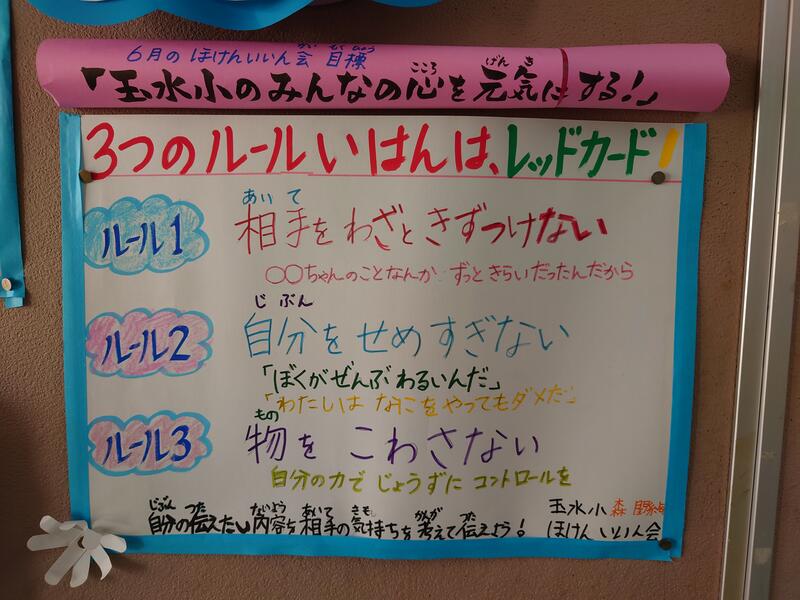 6月の ほけんいいん会 目標
かい もくひょう
こころ げんき
「玉水小のみんなの心を元気にする!」
3つのルールいはんは、レッドカード!
あいて
ルール1 相手をわざときずつけない
○○ちゃんのことなんか ずっときらいだったんだから
じぶん
ルール2 自分をせめすぎない
「ぼくがぜんぶわるいんだ」
「わたしは なにをやってもダメだ」
もの
ルール3 物をこわさない
自分の力で じょうずに コントロールを
じぶん つた ないよう あいて きも かんが つた
自分の伝えたい内容を相手の気持ちを考えて伝えよう!
玉水小 森
ほけん いいん会